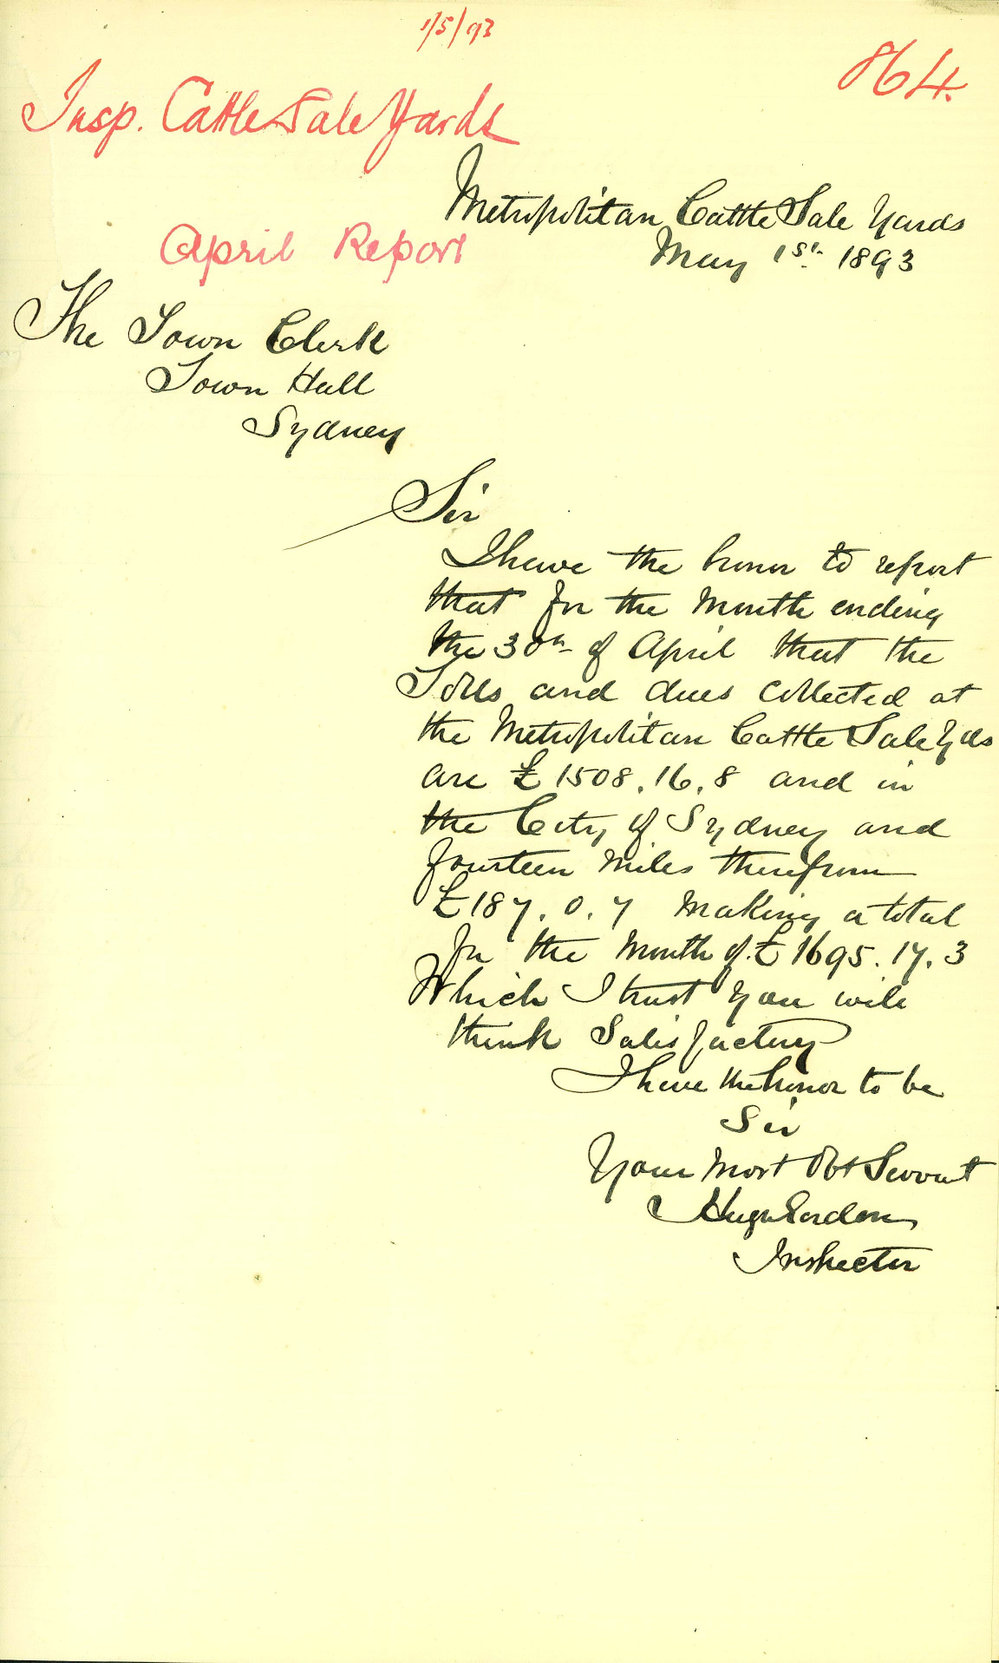 1/5/93
864.
Insp. Cattle Sale Yards
Metropolitan Cattle Sale Yards
April Report
May 1st. 1893
The Town Clerk
Town Hall
Sydney
Sir
I have the honor to report
that for the Month ending
the 30th of April that the
Tolls and dues collected at
the Metropolitan Cattle Sale Yds
are £1508.16.8 and in
the City of Sydney and
fourteen Miles therefrom
£187.0.7 Making a total
for the Month of £1695.17.3
Which I trust you will
think Satisfactory
I have the honor to be
Sir
Your Most Obt Servant
Hugh Gordon
Inspector